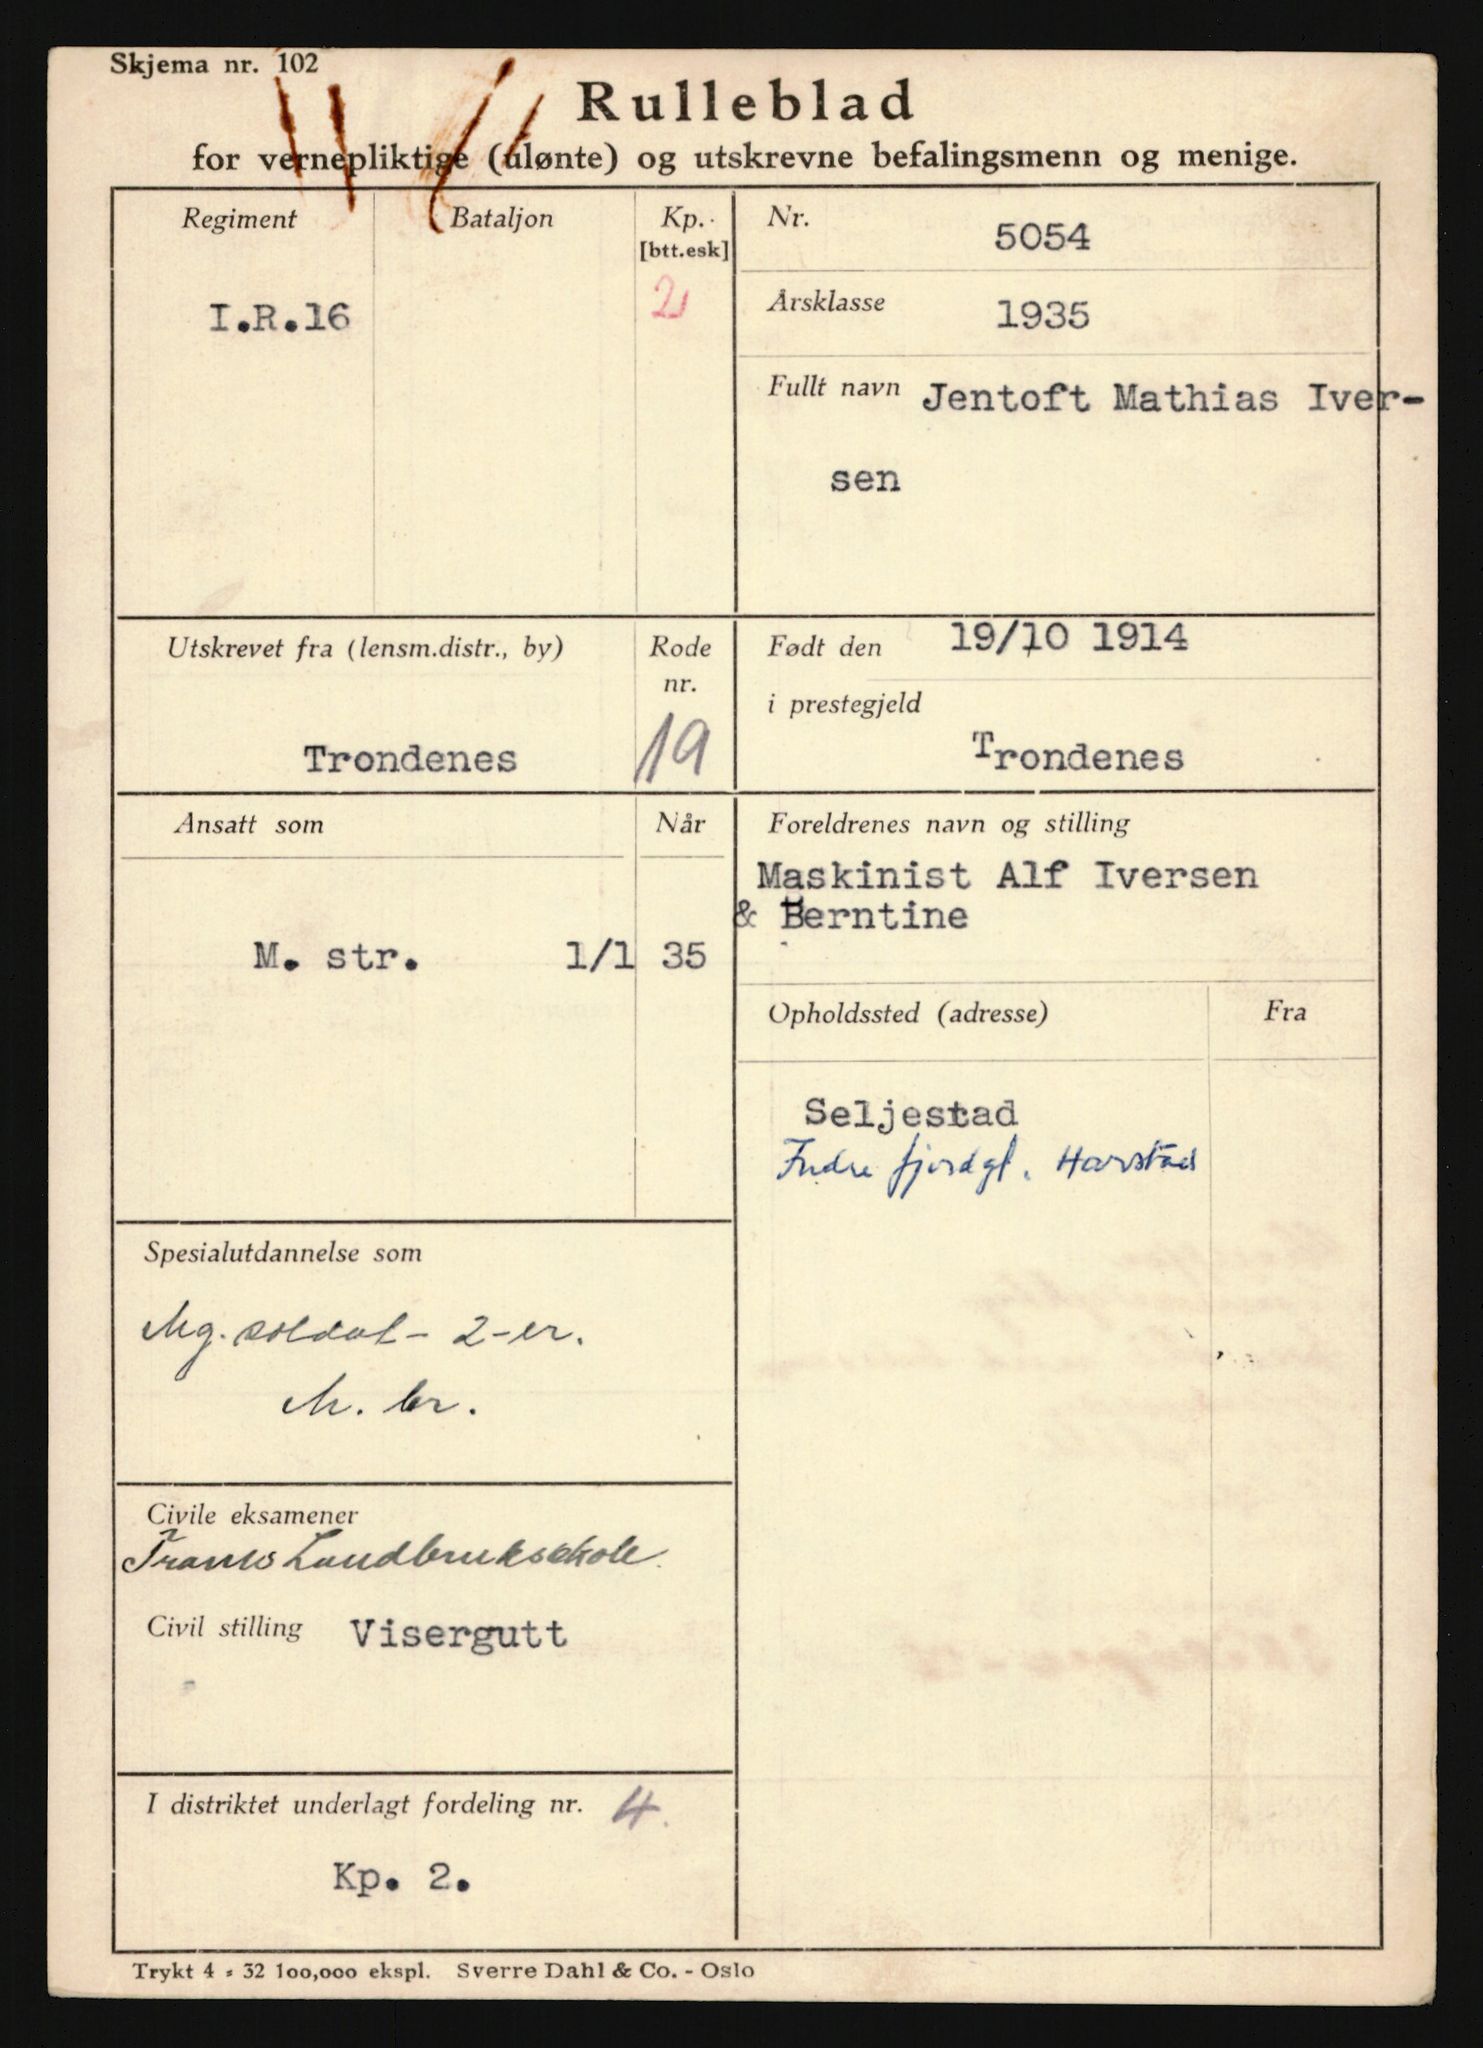 Skjema nr. 102
Rulleblad
for vernepliktige (ulønte) og utskrevne befalingsmenn og menige.
Regiment
Bataljon
Kp.
[btt.esk]
I.R.16
2
Nr.
5054
Årsklasse
1935
Fullt navn Jentoft Mathias Iver-
sen
Utskrevet fra (lensm.distr., by)
Rode
nr.
Trondenes
19
Født den 19/10 1914
i prestegjeld
Trondenes
Ansatt som
Når
M. str. 1/1 35
Foreldrenes navn og stilling
Maskinist Alf Iversen
& Berntine
Opholdssted (adresse)
Fra
Seljestad
Indre fjordgt. Harstad
Spesialutdannelse som
Mg. soldat - 2-er.
M. br.
Civile eksamener
Troms Landbrukskole
Civil stilling Visergutt
I distriktet underlagt fordeling nr. 4.
Kp. 2.
Trykt 4 - 32 100,000 ekspl. Sverre Dahl & Co. - Oslo